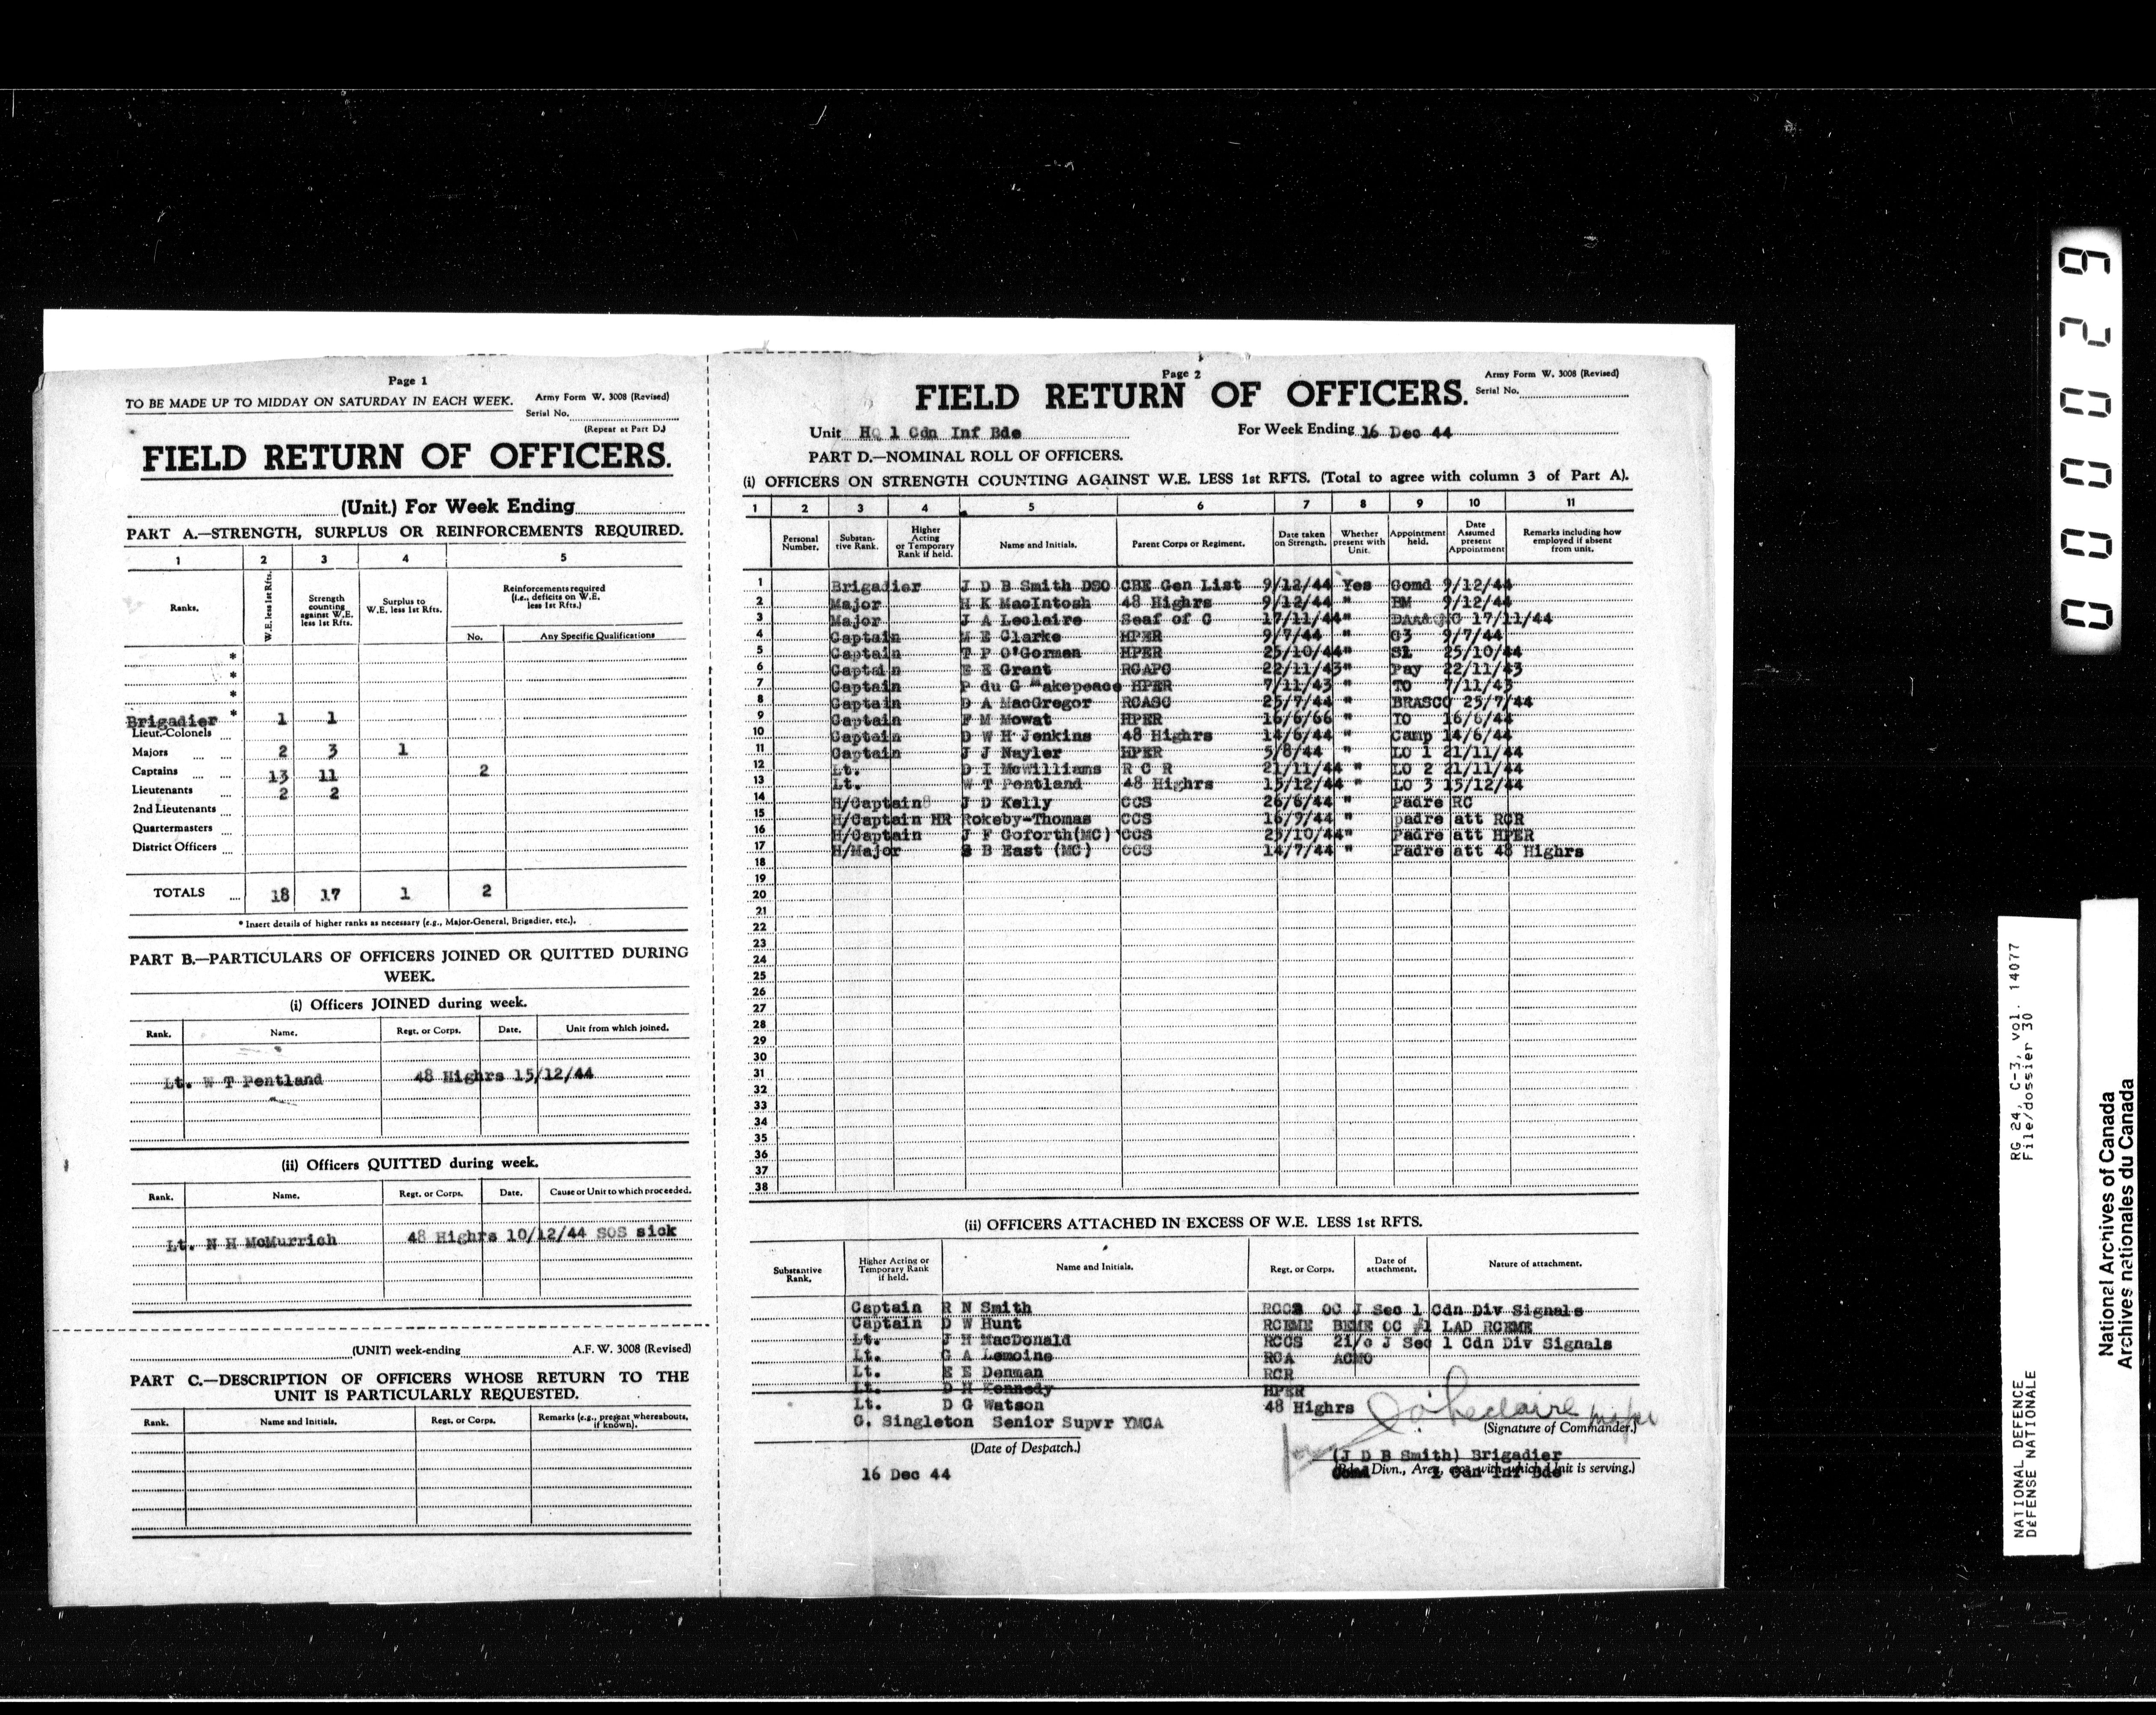 Page 1
TO BE MADE UP TO MIDDAY ON SATURDAY IN EACH WEEK.
Army Form W. 3008 (Revised)
Serial No.
(Repeat at Part D.)
FIELD RETURN OF OFFICERS.
(Unit.) For Week Ending
PART A.—STRENGTH, SURPLUS OR REINFORCEMENTS REQUIRED.
1 2 3 4 5
Ranks. W.E. less 1st Rfts. Strength counting against W.E. less 1st Rfts. Surplus to W.E. less 1st Rfts. Reinforcements required (i.e., deficits on W.E. less 1st Rfts.)
No. Any Specific Qualifications
*
*
*
Brigadier * 1 1
Lieut.-Colonels
Majors 2 3 1
Captains 13 11 2
Lieutenants 2 2
2nd Lieutenants
Quartermasters
District Officers
TOTALS 18 17 1 2
* Insert details of higher ranks as necessary (e.g., Major-General, Brigadier, etc.).
PART B.—PARTICULARS OF OFFICERS JOINED OR QUITTED DURING
WEEK.
(i) Officers JOINED during week.
Rank. Name. Regt. or Corps. Date. Unit from which joined.
Lt. W T Pentland 48 Highrs 15/12/44
(ii) Officers QUITTED during week.
Rank. Name. Regt. or Corps. Date. Cause or Unit to which proceeded.
Lt. N H McMurrich 48 Highrs 10/12/44 SOS sick
(UNIT) week-ending A.F. W. 3008 (Revised)
PART C.—DESCRIPTION OF OFFICERS WHOSE RETURN TO THE
UNIT IS PARTICULARLY REQUESTED.
Rank. Name and Initials. Regt. or Corps. Remarks (e.g., present whereabouts, if known).
Page 2
Army Form W. 3008 (Revised)
FIELD RETURN OF OFFICERS.
Serial No.
Unit HQ 1 Cdn Inf Bde For Week Ending 16 Dec 44
PART D.—NOMINAL ROLL OF OFFICERS.
(i) OFFICERS ON STRENGTH COUNTING AGAINST W.E. LESS 1st RFTS. (Total to agree with column 3 of Part A).
1 2 3 4 5 6 7 8 9 10 11
Personal Number. Substantive Rank. Higher Acting or Temporary Rank if held. Name and Initials. Parent Corps or Regiment. Date taken on Strength. Whether present with Unit. Appointment held. Date Assumed present Appointment Remarks including how employed if absent from unit.
1 Brigadier J D B Smith DSO CBE Gen List 9/12/44 Yes Comd 9/12/44
2 Major H K MacIntosh 48 Highrs 9/12/44 " BM 9/12/44
3 Major J A Leclaire Seaf of C 17/11/44 " DAA&QMG 17/11/44
4 Captain M E Clarke HPER 9/7/44 " G3 9/7/44
5 Captain T P O'Gorman HPER 25/10/44 " SL 25/10/44
6 Captain E E Grant RCAPC 22/11/43 " Pay 22/11/43
7 Captain P du G Makepeace HPER 7/11/43 " TO 7/11/43
8 Captain D A MacGregor RCASC 25/7/44 " BRASCO 25/7/44
9 Captain F M Mowat HPER 16/6/66 " IO 16/6/44
10 Captain D W H Jenkins 48 Highrs 14/6/44 " Camp 14/6/44
11 Captain J J Nayler HPER 5/8/44 " LO 1 21/11/44
12 Lt. D I McWilliams R C R 21/11/44 " LO 2 21/11/44
13 Lt. W T Pentland 48 Highrs 15/12/44 " LO 3 15/12/44
14 H/Captain J D Kelly CCS 26/6/44 " Padre RC
15 H/Captain HR Rokeby-Thomas CCS 16/9/44 " padre att RCR
16 H/Captain J F Goforth(MC) CCS 23/10/44 " Padre att HPER
17 H/Major S B East (MC) CCS 14/7/44 " Padre att 48 Highrs
18
19
20
21
22
23
24
25
26
27
28
29
30
31
32
33
34
35
36
37
38
(ii) OFFICERS ATTACHED IN EXCESS OF W.E. LESS 1st RFTS.
Substantive Rank. Higher Acting or Temporary Rank if held. Name and Initials. Regt. or Corps. Date of attachment. Nature of attachment.
Captain R N Smith RCCS OC J Sec 1 Cdn Div Signals
Captain D W Hunt RCEME BEME OC #1 LAD RCEME
Lt. J H MacDonald RCCS 2i/c J Sec 1 Cdn Div Signals
Lt. G A Lemoine RCA ACMO
Lt. E E Denman RCR
Lt. D H Kennedy HPER
Lt. D G Watson 48 Highrs
G. Singleton Senior Supvr YMCA
JALeclaire major
(Signature of Commander.)
(Date of Despatch.)
for
(J D B Smith) Brigadier
16 Dec 44
Comd 1 Cdn Inf Bde
(Bde., Divn., Area, etc., with which Unit is serving.)
000029
RG 24, C-3, vol. 14077
File/dossier 30
NATIONAL DEFENCE
DÉFENSE NATIONALE
National Archives of Canada
Archives nationales du Canada